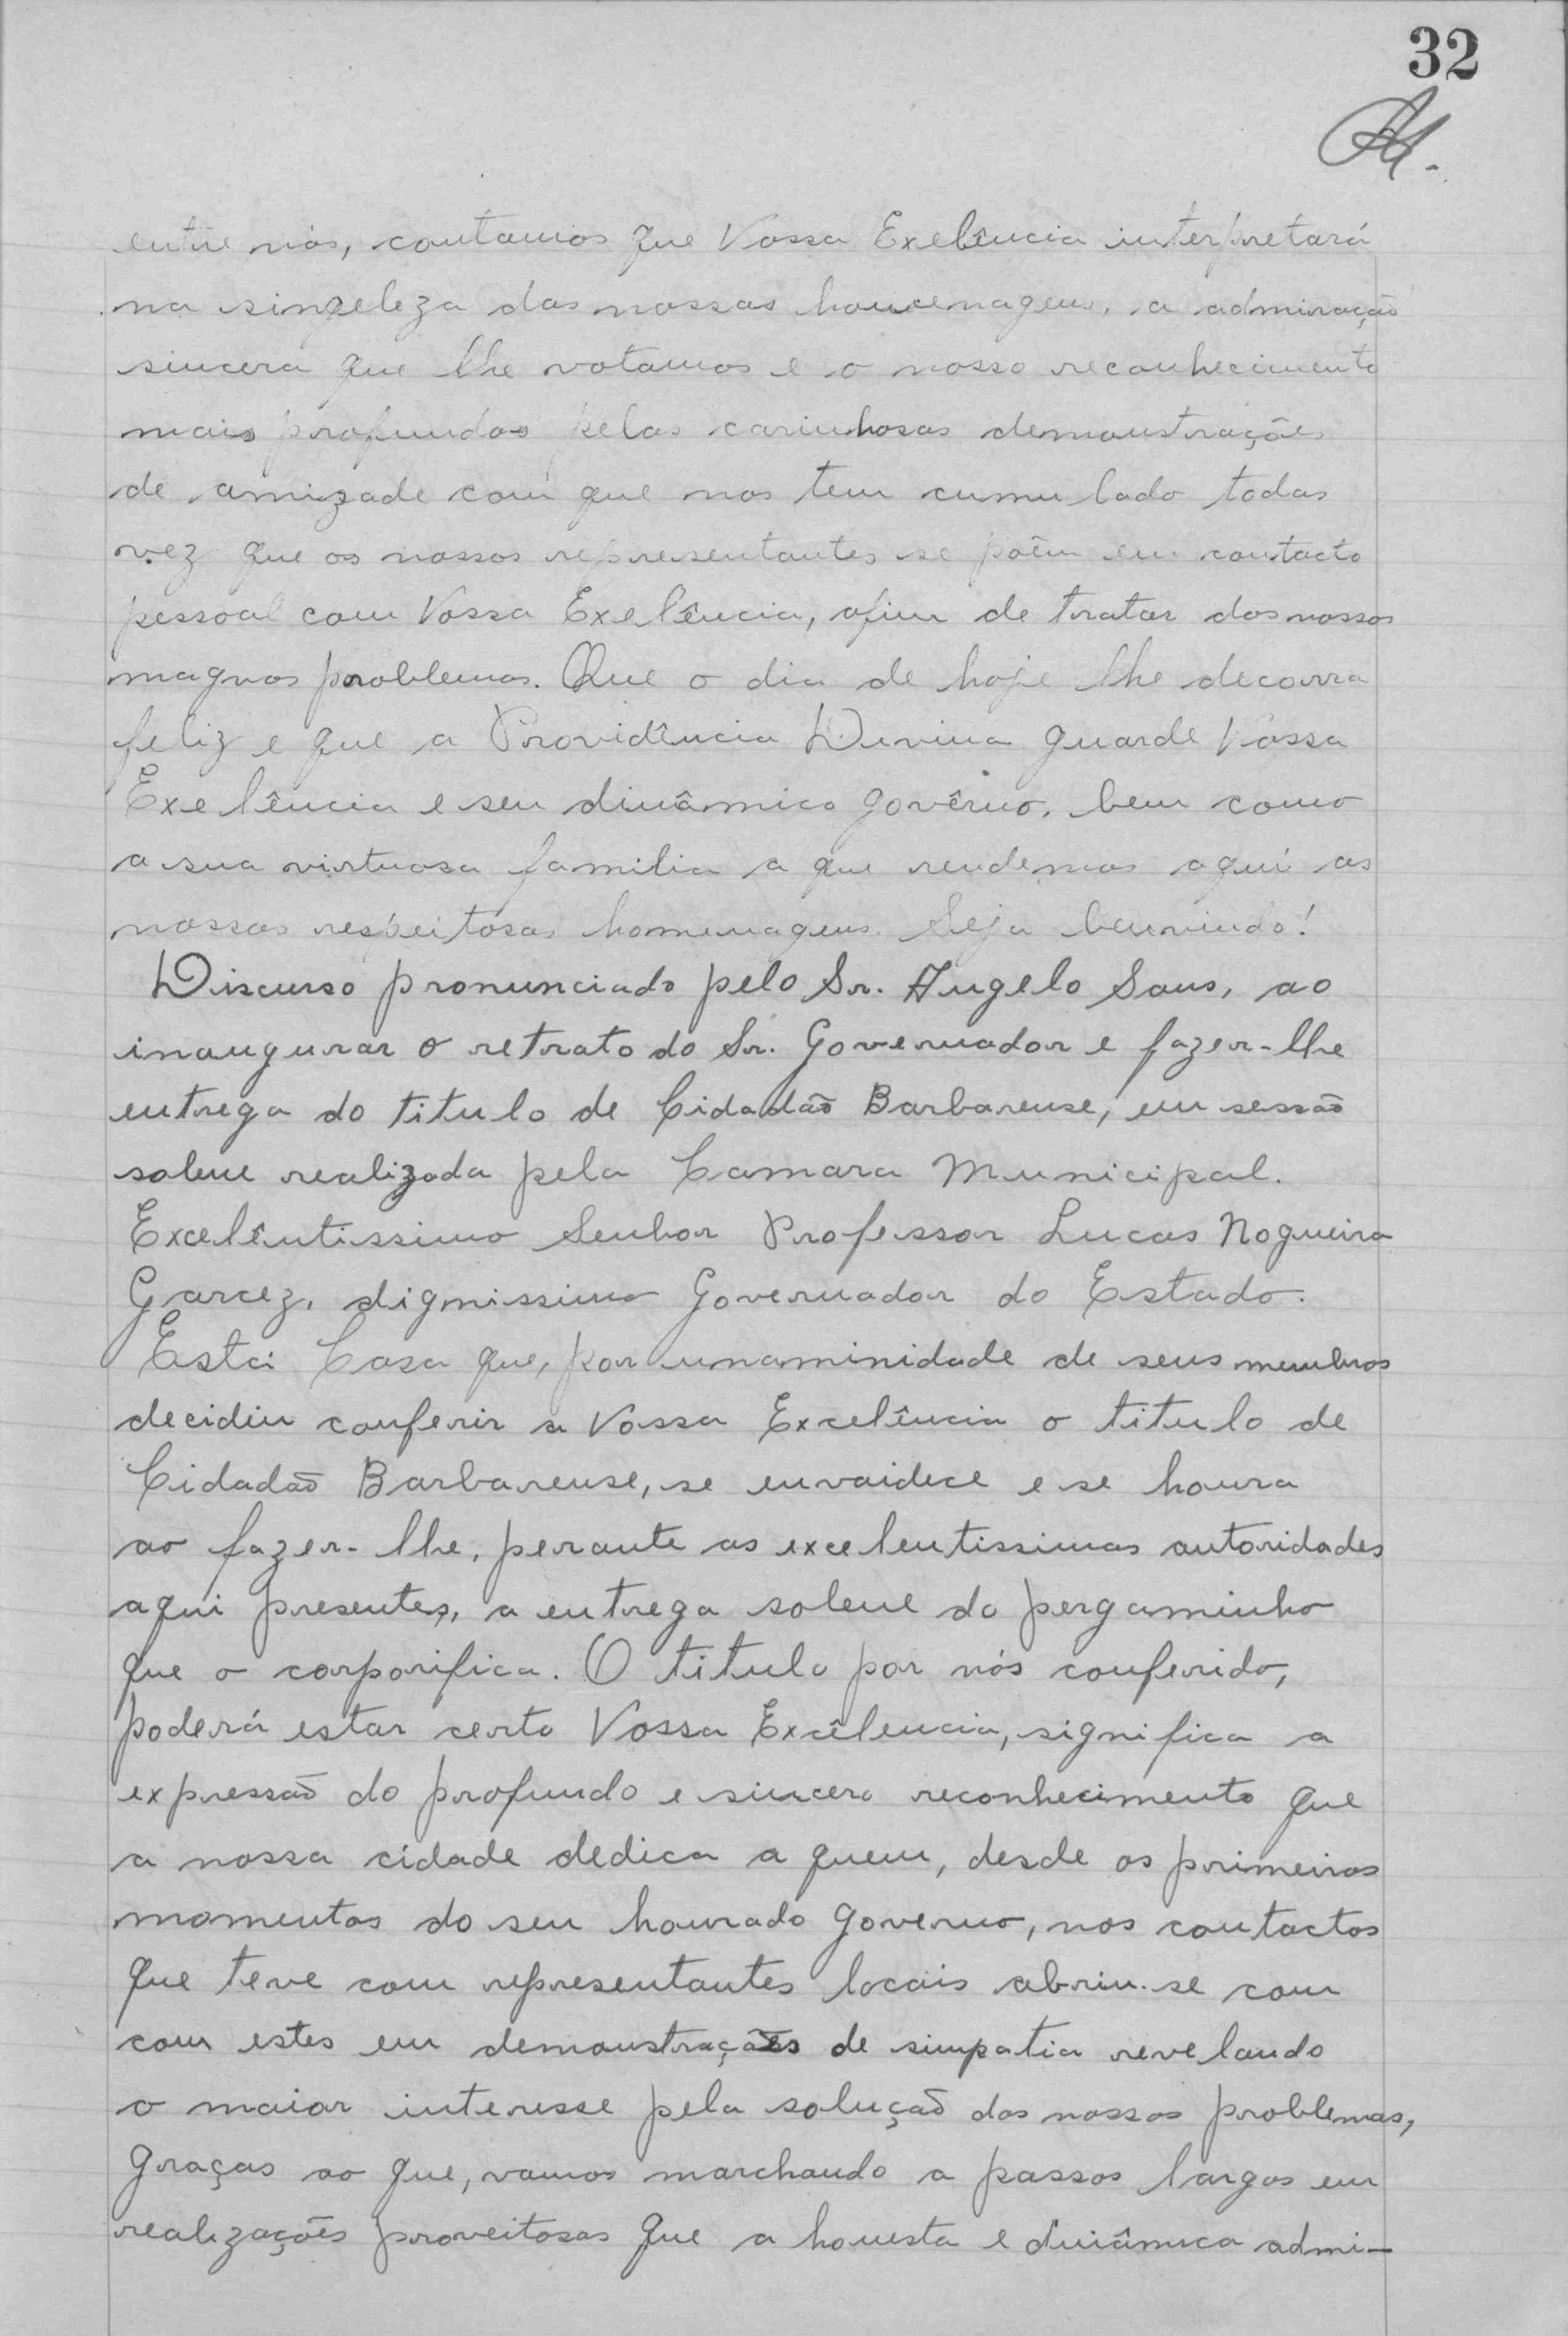 32
entre nós, contamos que Vossa Exelência interpretará
na singeleza das nossas homenagens, a admiração
sincera que lhe votamos e o nosso reconhecimento
mais profundos pelas carinhosas demonstrações
de amizade com que nos tem cumulado todas
vez que os nossos representantes se poêm em contacto
pessoal com Vossa Exelência, afim de tratar dos nossos
magnos problemas. Que o dia de hoje lhe decorra
feliz e que a Providência Divina guarde Vossa
Exelência e seu dinâmico govêrno, bem como
a sua virtuosa familia a que rendemos aqui as
nossas respeitósas homenagens. Seja bemvindo!
Discurso pronunciado pelo Sr. Angelo Sans, ao
inaugurar o retrato do Sr. Governador e fazer-lhe
entrega do titulo de Cidadão Barbarense, em sessão
solene realizada pela Camara Municipal.
Excelêntissimo Senhor Professor Lucas Nogueira
Garcez, digmissimo Governador do Estado.
Esta Casa que, por unaminidade de seus membros
decidiu conferir a Vossa Excelência o titulo de
Cidadão Barbarense, se envaidece e se honra
ao fazer-lhe, perante as excelentissimas autoridades
aqui presentes, a entrega solene do pergaminho
que o corporifica. O titulo por nós conferido,
poderá estar certo Vossa Excêlencia, significa a
expressão do profundo e sincero reconhecimento que
a nossa cidade dedica a quem, desde os primeiros
momentos do seu honrado governo, nos contactos
que teve com representantes locais abriu-se com
com estes em demonstrações de simpatia revelando
o maior interesse pela solução dos nossos problemas,
graças ao que, vamos marchando a passos largos em
realizações proveitosas que a honesta e dinâmica admi-